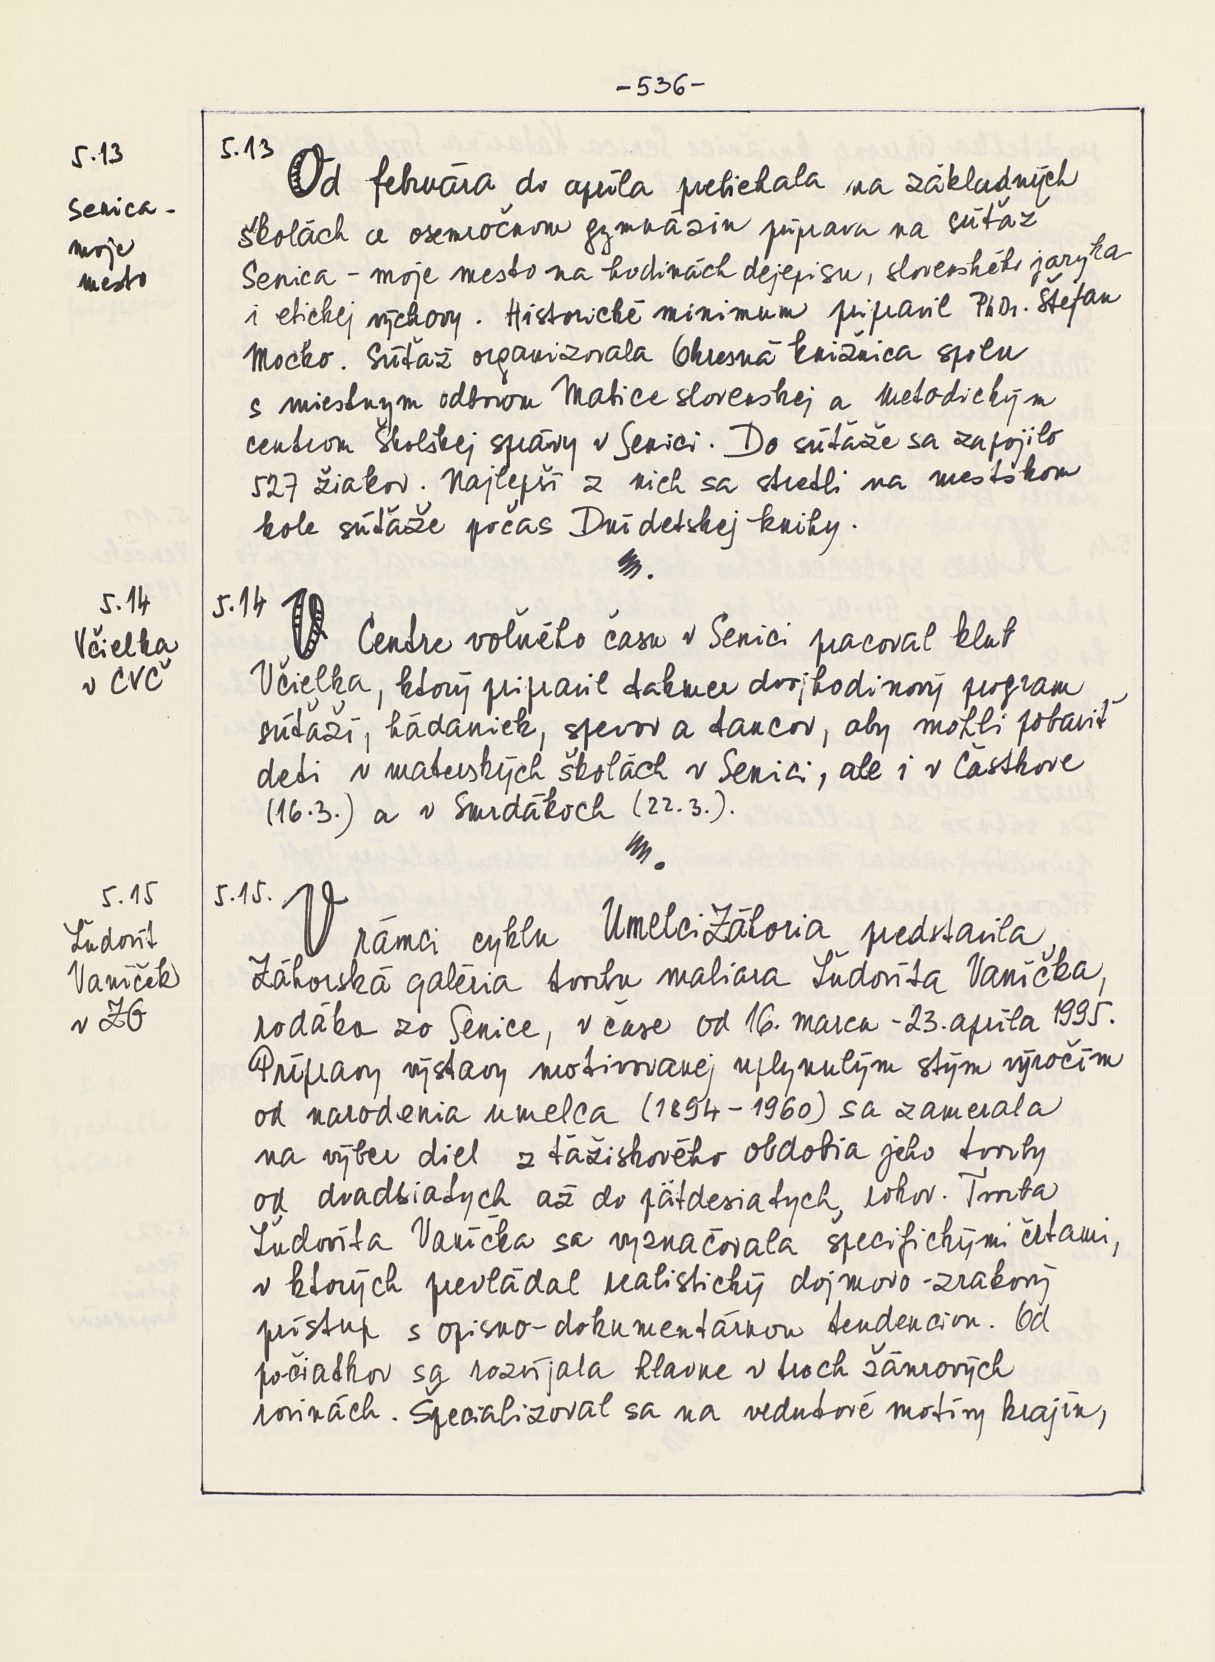 -536-
5.13
Senica -
moje
mesto
5.13 Od februára do apríla prebiehala na základných
školách a osemročnom gymnáziu príprava na súťaž
Senica - moje mesto na hodinách dejepisu, slovenského jazyka
i etickej výchovy. Historické minimum pripravil PhDr. Štefan
Mocko. Súťaž organizovala Okresná knižnica spolu
s miestnym odborom Matice slovenskej a Metodickým
centrom Školskej správy v Senici. Do súťaže sa zapojilo
527 žiakov. Najlepší z nich sa stretli na mestskom
kole súťaže počas Dní detskej knihy.
5.14
Včielka
v CVČ
5.14 V Centre voľného času v Senici pracoval klub
Včielka, ktorý pripravil takmer dvojhodinový program
súťaží, hádaniek, spevov a tancov, aby mohli pobaviť
deti v materských školách v Senici, ale i v Častkove
(16.3.) a v Smrdákoch (22.3.).
5.15
Ľudovít
Vaníček
v ZG
5.15. V rámci cyklu Umelci Záhoria predstavila
Záhorská galéria tvorbu maliara Ľudovíta Vaníčka,
rodáka zo Senice, v čase od 16. marca - 23. apríla 1995.
Prípravy výstavy motivovanej uplynulým stým výročím
od narodenia umelca (1894 - 1960) sa zamerala
na výber diel z ťažiskového obdobia jeho tvorby
od dvadsiatych až do päťdesiatych, rokov. Tvorba
Ľudovíta Vaníčka sa vyznačovala špecifickými črtami,
v ktorých prevládal realistický dojmovo-zrakový
prístup s opisno-dokumentárnou tendenciou. Od
počiatkov sa rozvíjala hlavne v troch žánrových
rovinách. Špecializoval sa na vedutové motívy krajín,